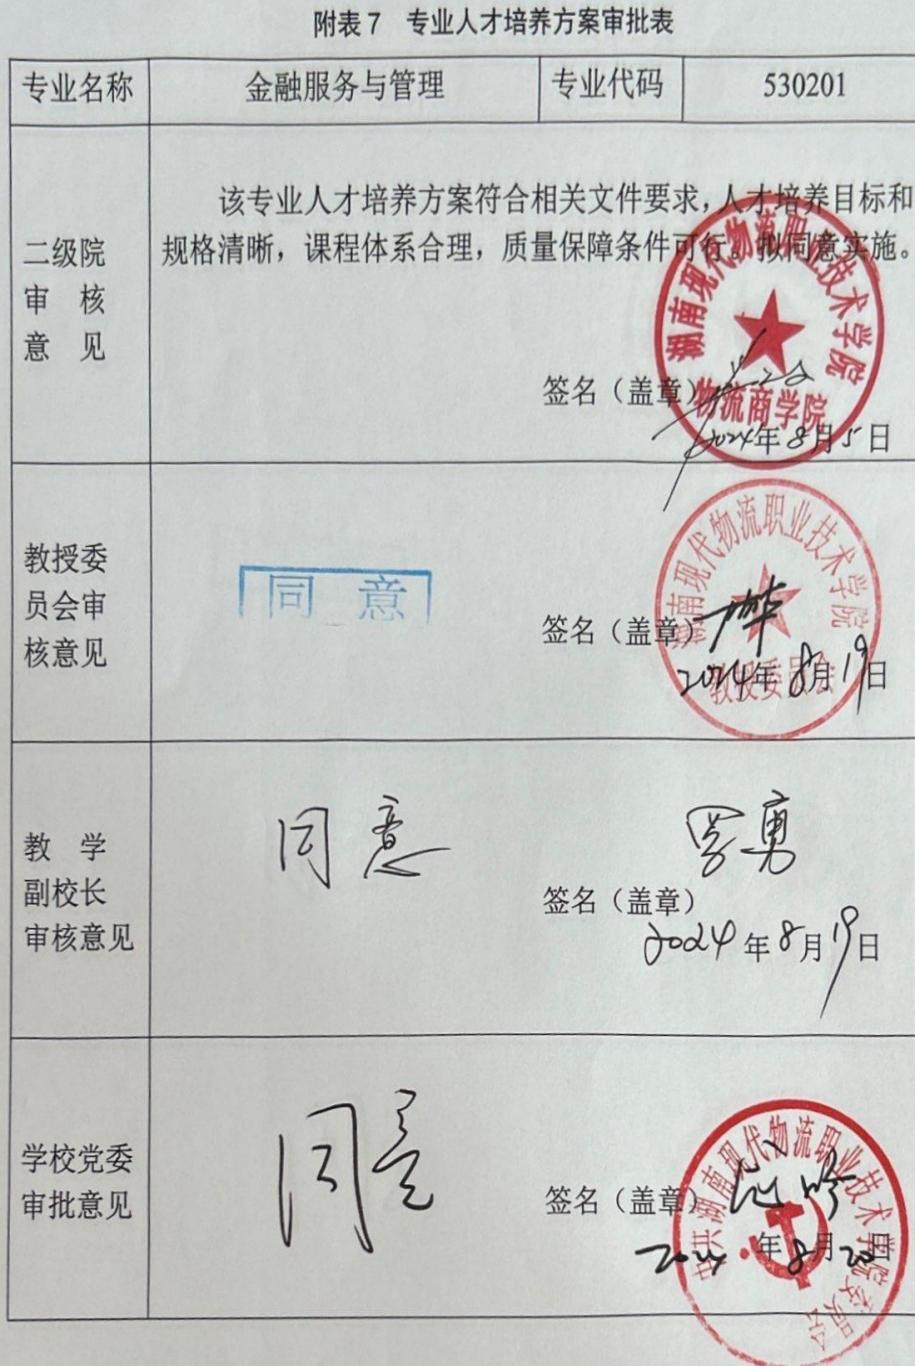 附表7 专业人才培养方案审批表
专业名称 金融服务与管理 专业代码 530201
二级院
审 核
意 见
该专业人才培养方案符合相关文件要求，人才培养目标和
规格清晰，课程体系合理，质量保障条件可行。拟同意实施。
湖南现代物流职业技术学院
物流商学院
签名（盖章）
2024年8月5日
教授委
员会审
核意见
同 意
湖南现代物流职业技术学院
教授委员会
签名（盖章）
2024年8月19日
教 学
副校长
审核意见
同意
罗勇
签名（盖章）
2024年8月19日
学校党委
审批意见
同意
中共湖南现代物流职业技术学院委员会
签名（盖章）
2024年8月20日